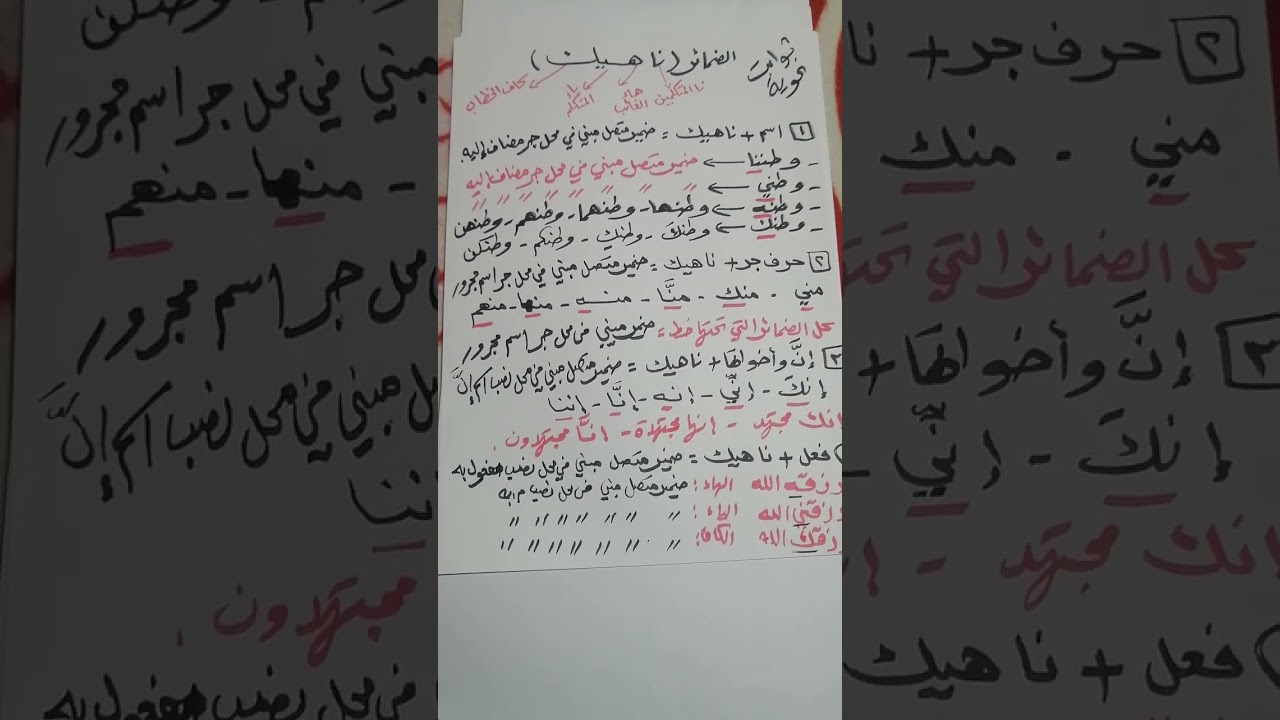 شواهد نحوية
الضمائر (ناهيك)
نا المتكلمين هاء الغائب ياء المتكلم كاف الخطاب
١ اسم + ناهيك = ضمير متصل مبني في محل جر مضاف إليه.
- وطننا ← ضمير متصل مبني في محل جر مضاف إليه
- وطني ← " " " " " " "
- وطنه ← وطنها - وطنهما - وطنهم - وطنهن
- وطنك ← وطنكَ - وطنكِ - وطنكم - وطنكن
٢ حرف جر + ناهيك = ضمير متصل مبني في محل جر اسم مجرور
مني . منك . منَّا - منه - منها - منهم
كل الضمائر التي تحتها خط = ضمير مبني في محل جر اسم مجرور
٣ إنَّ وأخواتها + ناهيك = ضمير متصل مبني في محل نصب اسم إنَّ
إنكَ - إنِّي - إنه - إنَّا - إننا
إنك مجتهد - إنها مجتهدة - إنَّا مجتهدون.
فعل + ناهيك = ضمير متصل مبني في محل نصب مفعول به
رزقه الله الهاء: ضمير متصل مبني في محل نصب م.به
رزقني الله الياء: " " " " " " "
رزقك الله الكاف: " " " " " " "